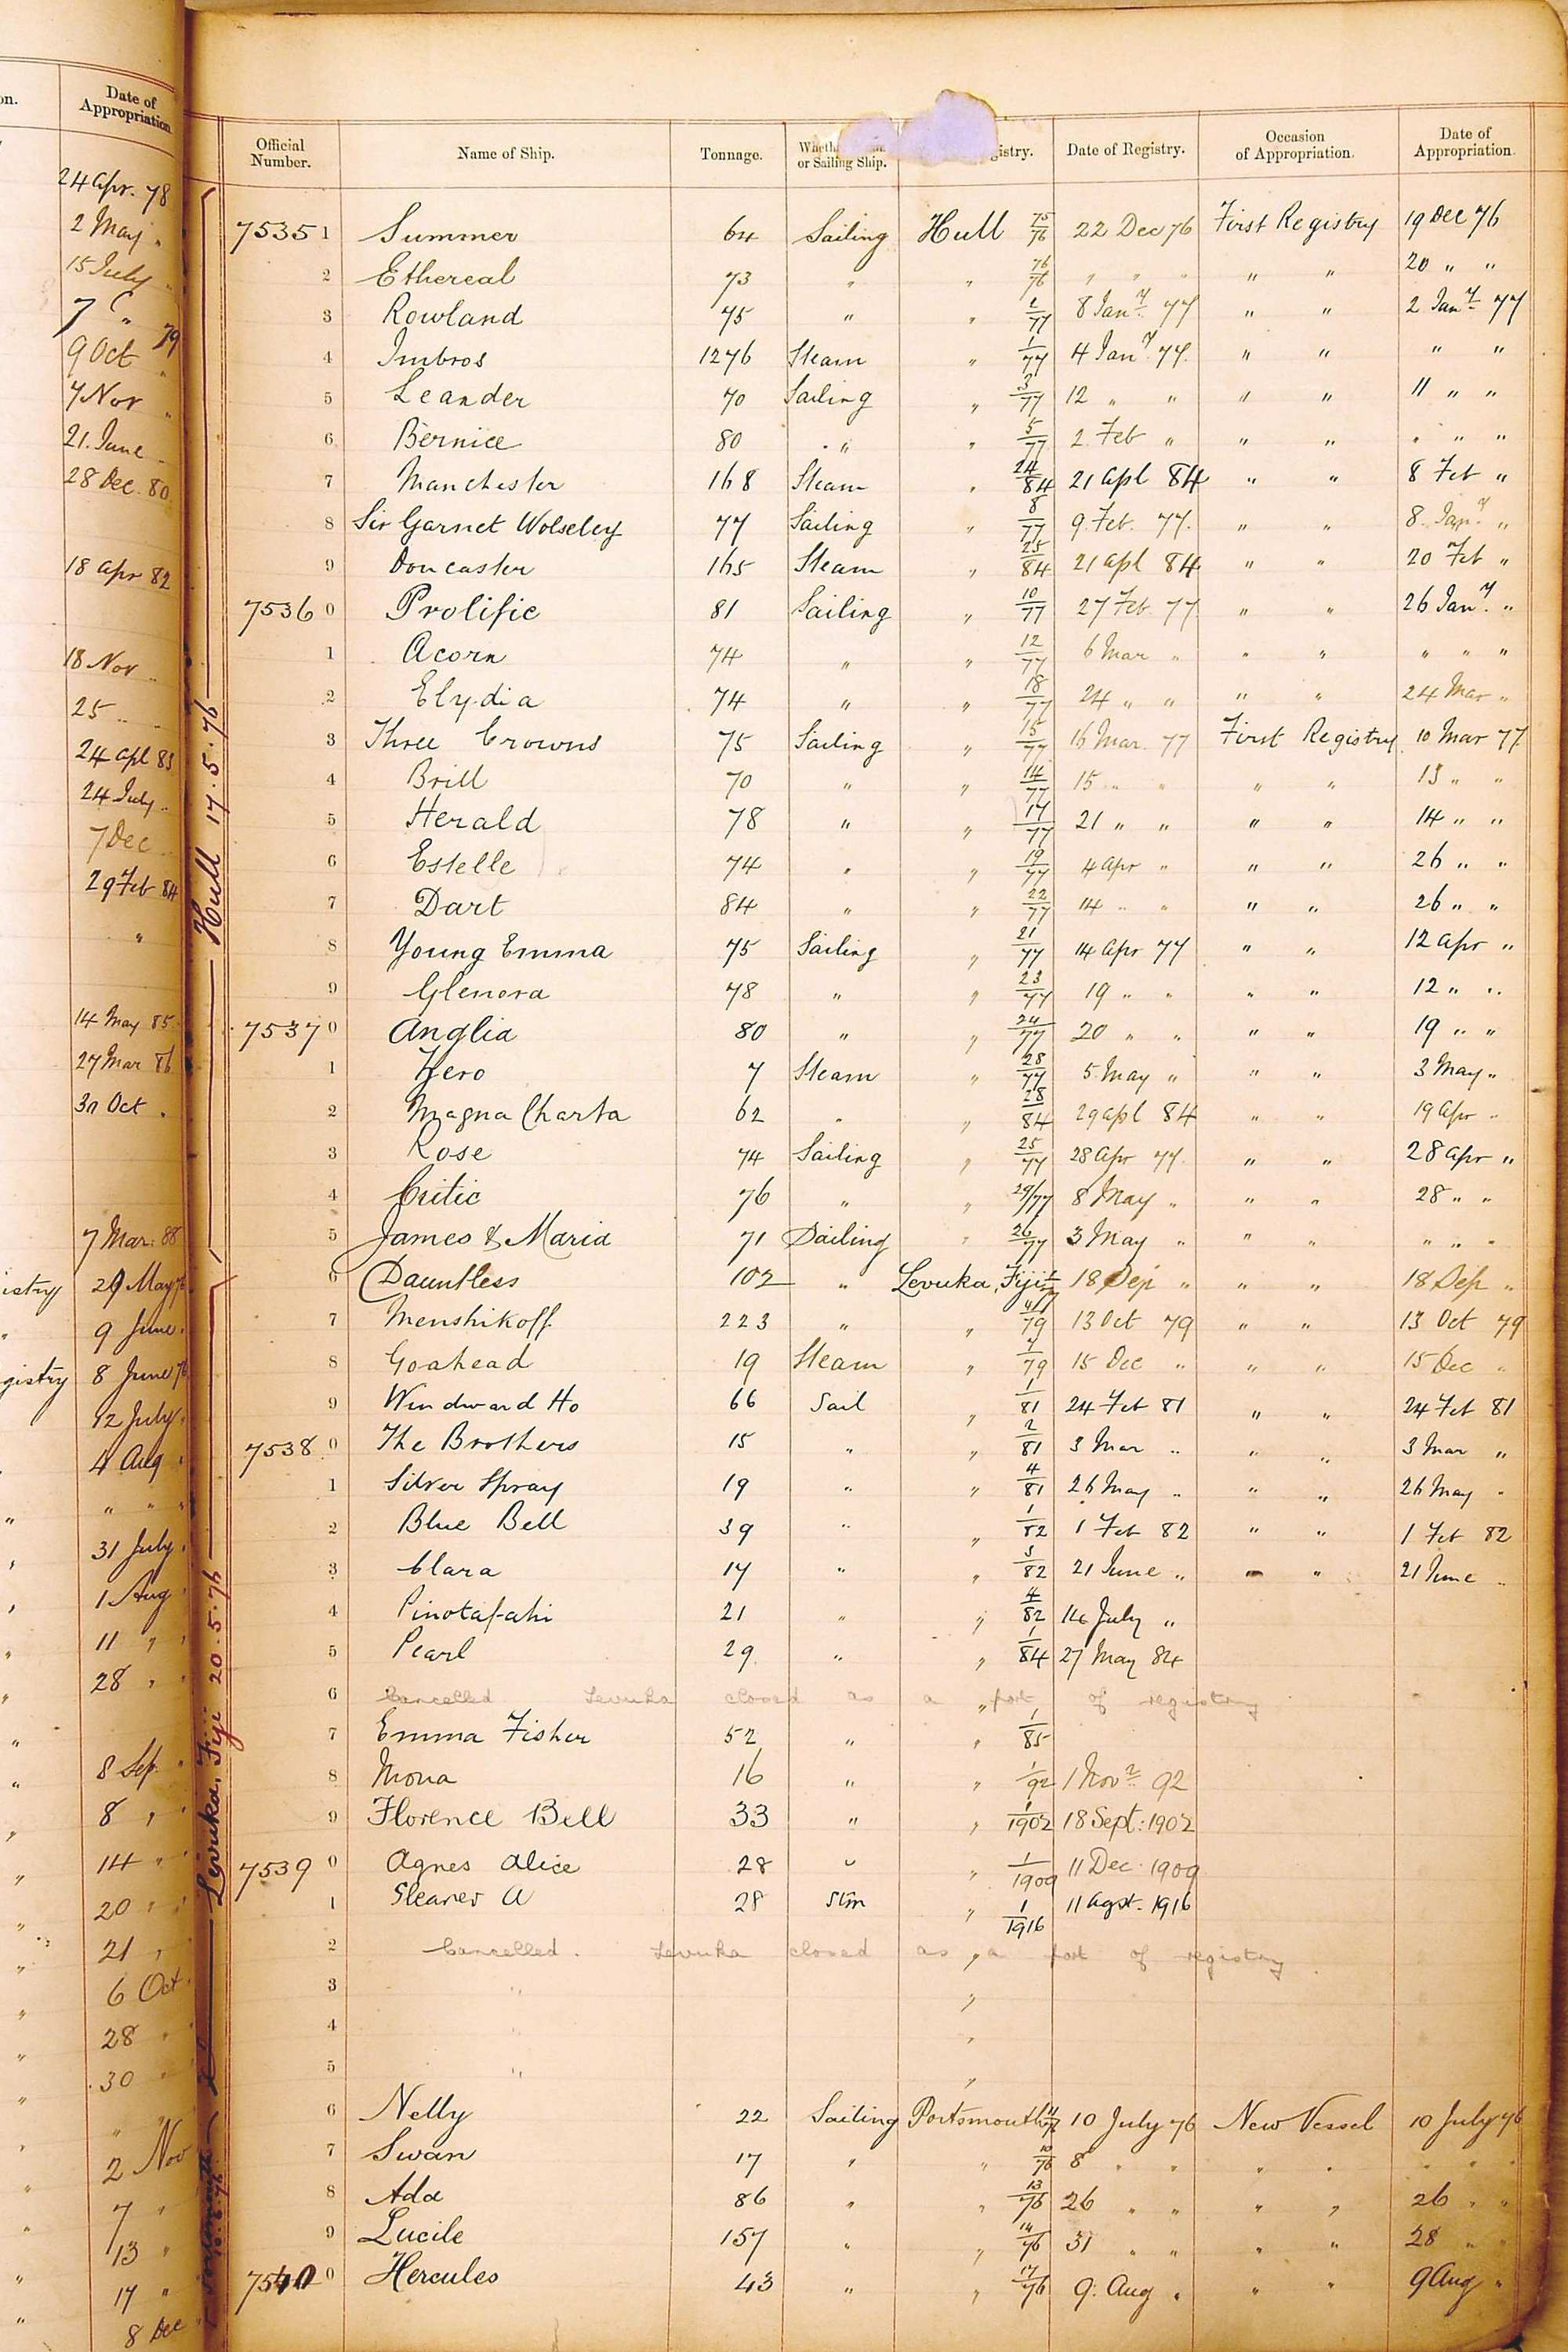 on.
Date of
Appropriation
24 Apr. 78
2 May "
15 July "
7 " 79
9 Oct "
7 Nov "
21 June
28 Dec. 80
18 Apr 82
18 Nov "
25 " "
24 Apl 83
24 July "
7 Dec "
29 Feb 84
"
14 May 85
27 Mar 86
30 Oct "
7 Mar. 88
istry 29 May 76
" 9 June "
gistry 8 June 76
12 July "
4 Aug "
" " "
31 July "
1 Aug "
11 " "
28 " "
8 Sep. "
8 "
14 "
20 "
21 "
6 Oct "
28 "
30 "
"
2 Nov
7 "
13 "
17 "
8 Dec
Hull 17.5.76
Levuka, Fiji 20.5.76
Official Number. Name of Ship. Tonnage. or Sailing Ship. gistry. Date of Registry. Occasion of Appropriation. Date of Appropriation.
75351 Summer 64 Sailing Hull 75/76 22 Dec 76 First Registry 19 Dec 76
2 Ethereal 73 " " 76/76 " " " " " 20 " "
3 Rowland 75 " " 2/77 8 Jany 77 " " 2 Jany 77
4 Imbros 1276 Steam " 1/77 4 Jany 77. " " " "
5 Leander 70 Sailing " 3/77 12 " " " " 11 " "
6 Bernice 80 " " 5/77 2 Feb " " " " " "
7 Manchester 168 Steam " 24/84 21 Apl 84 " " 8 Feb "
8 Sir Garnet Wolseley 77 Sailing " 8/77 9 Feb. 77. " " 8 Jany "
9 Doncaster 165 Steam " 25/84 21 Apl 84 " " 20 Feb "
75360 Prolific 81 Sailing " 10/77 27 Feb 77 " " 26 Jany. "
1 Acorn 74 " " 12/77 6 Mar " " " " " "
2 Elydia 74 " " 18/77 24 " " " " 24 Mar "
3 Three Crowns 75 Sailing " 15/77 16 Mar 77 First Registry 10 Mar 77
4 Brill 70 " " 14/77 15 " " " " 13 " "
5 Herald 78 " " 17/77 21 " " " " 14 " "
6 Estelle 74 " " 19/77 4 Apr " " " 26 " "
7 Dart 84 " " 22/77 14 " " " " 26 " "
8 Young Emma 75 Sailing " 21/77 14 Apr 77 " " 12 Apr "
9 Glenora 78 " " 23/77 19 " " " " 12 " "
75370 Anglia 80 " " 24/77 20 " " " " 19 " "
1 Hero 7 Steam " 28/77 5 May " " " 3 May "
2 Magna Charta 62 " " 28/84 29 Apl 84 " " 19 Apr "
3 Rose 74 Sailing " 25/77 28 Apr 77. " " 28 Apr "
4 Critic 76 " " 29/77 8 May " " " 28 " "
5 James & Maria 71 Sailing " 26/77 3 May " " " " " "
6 Dauntless 102 " Levuka, Fiji 18 Sep " " " 18 Sep "
7 Menshikoff 223 " " 4/79 13 Oct 79 " " 13 Oct 79
8 Goahead 19 Steam " 7/79 15 Dec " " " 15 Dec "
9 Windward Ho 66 Sail " 1/81 24 Feb 81 " " 24 Feb 81
75380 The Brothers 15 " " 2/81 3 Mar " " " 3 Mar "
1 Silver Spray 19 " " 4/81 26 May " " " 26 May "
2 Blue Bell 39 " " 1/82 1 Feb 82 " " 1 Feb 82
3 Clara 17 " " 3/82 21 June " " " 21 June "
4 Pinotapahi 21 " " 4/82 14 July "
5 Pearl 29 " " 1/84 27 May 84
6 Cancelled Levuka closed as a port of registry
7 Emma Fisher 52 " " 1/85
8 Mona 16 " " 1/92 1 Novr 92
9 Florence Bell 33 " " 1/1902 18 Sept: 1902
75390 Agnes Alice 28 " " 1/1909 11 Dec 1909
1 Eleanor A 28 Stm " 1/1916 11 Agst. 1916
2 Cancelled. Levuka closed as a port of registry
3 " "
4 " "
5 " "
6 Nelly 22 Sailing Portsmouth 10 July 76 New Vessel 10 July 76
7 Swan 17 " " 10/76 8 " " " " " " "
8 Ada 86 " " 13/76 26 " " " " 26 " "
9 Lucile 157 " " 14/76 31 " " " " 28 " "
75400 Hercules 43 " " 17/76 9. Aug " " " 9 Aug "